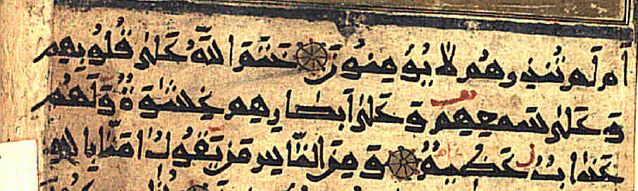 ام لم تنذرهم لا يؤمنون ختم الله على قلوبهم
وعلى سمعهم وعلى ابصارهم غشوة ولهم
عذاب عظيم ومن الناس من يقول امنا بالله